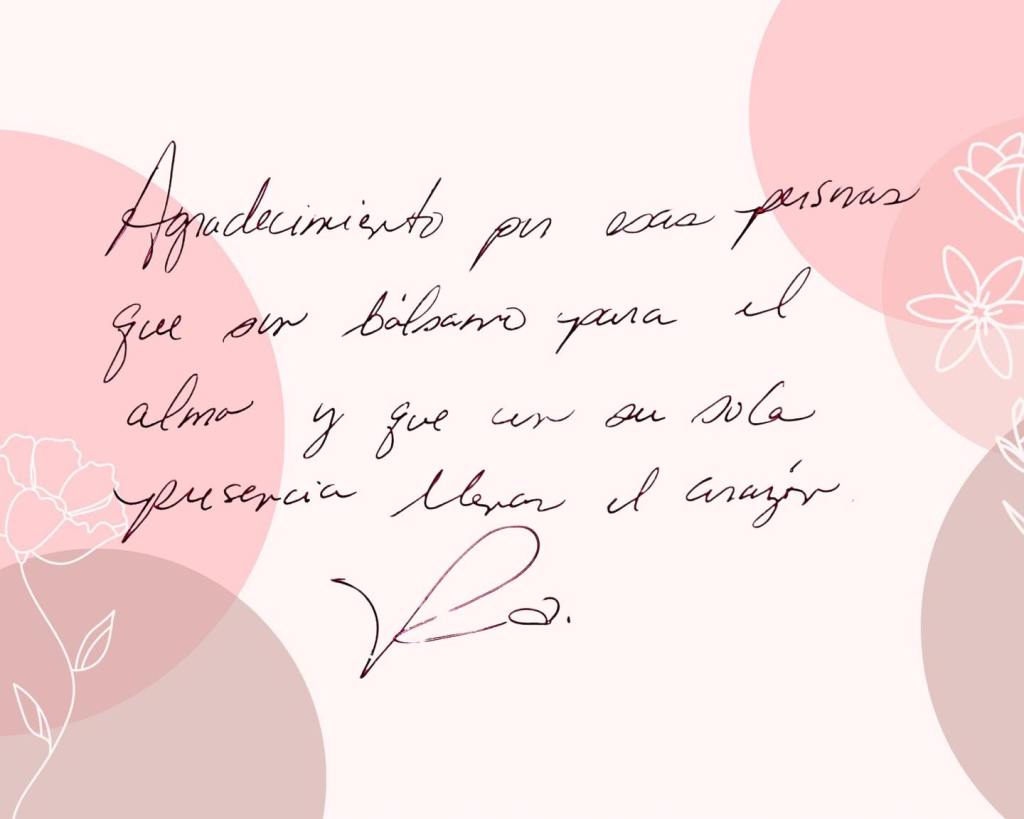 Agradecimiento por esas personas
que son bálsamo para el
alma y que con su sola
presencia llenan el corazón